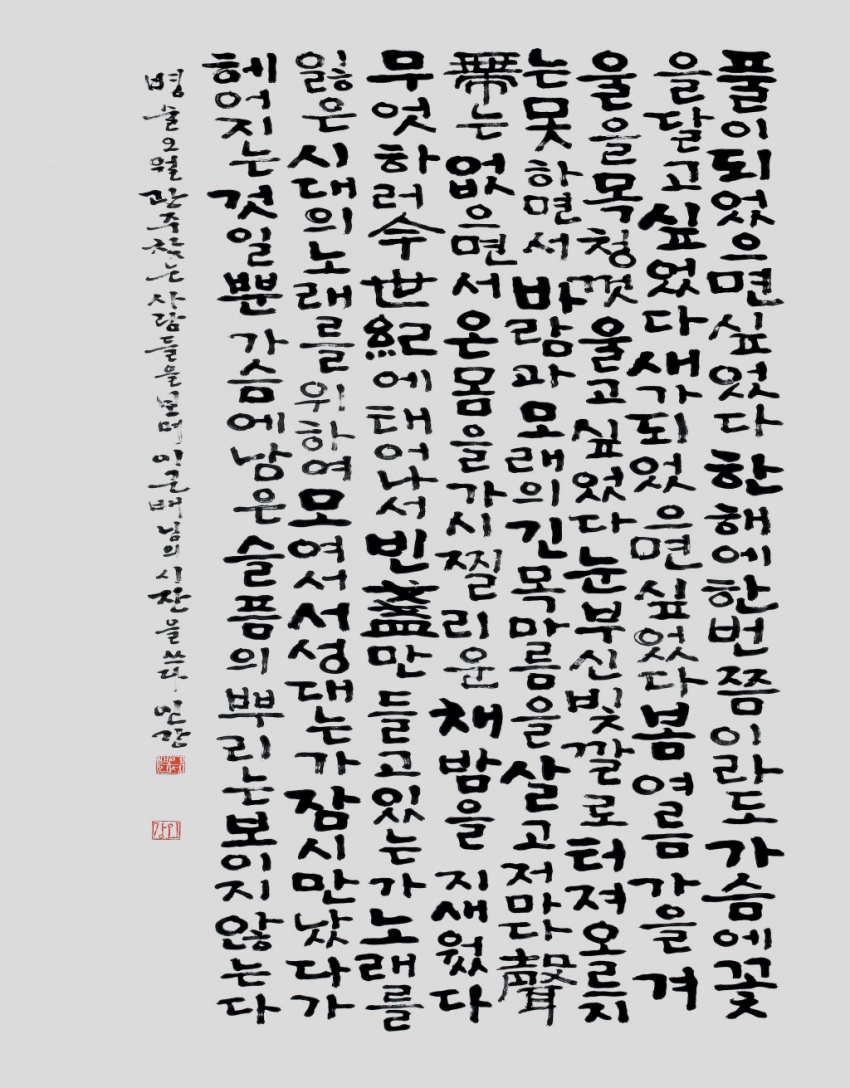 풀이되었으면싶었다한해에한번쯤이라도가슴에꽃
을달고싶었다새가되었으면싶었다봄여름가을겨
울을목청껏울고싶었다눈부신빛깔로터져오르지
는못하면서바람과모래의긴목마름을살고저마다聲
帶는없으면서온몸을가시찔리운채밤을지새웠다
무엇하러今世紀에태어나서빈盞만들고있는가노래를
잃은시대의노래를위하여모여서서성대는가잠시만났다가
헤어지는것일뿐가슴에남은슬픔의뿌리는보이지않는다
병술오월 사람들을보며이근배님의시잔을쓰다 인강
인강